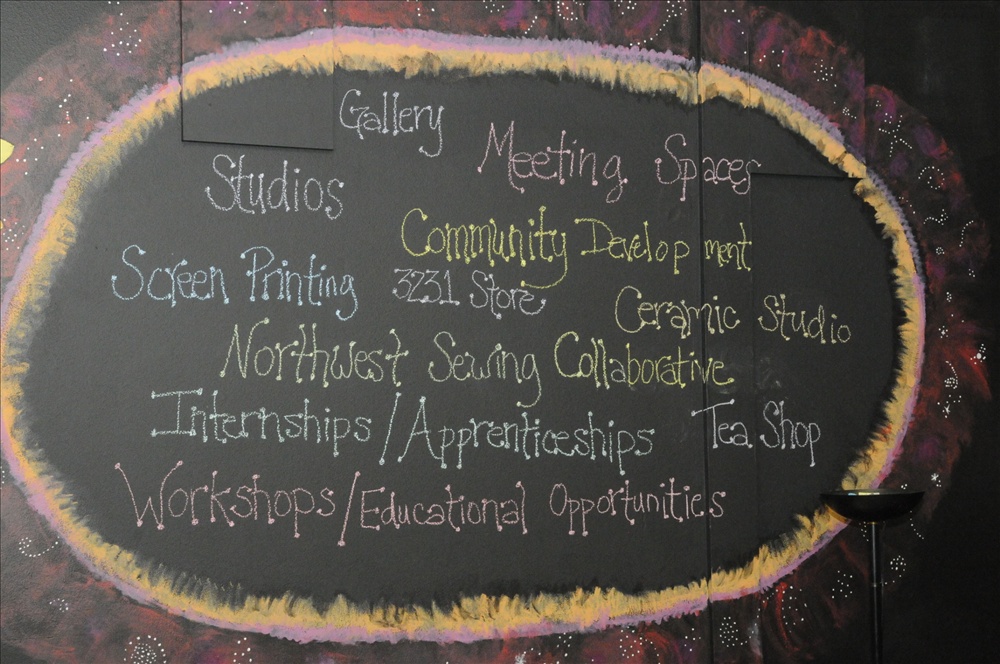 Gallery
Meeting Spaces
Studios
Community Development
Screen Printing
3231 Store
Ceramic Studio
Northwest Sewing Collaborative
Internships/Apprenticeships
Tea Shop
Workshops/Educational Opportunities